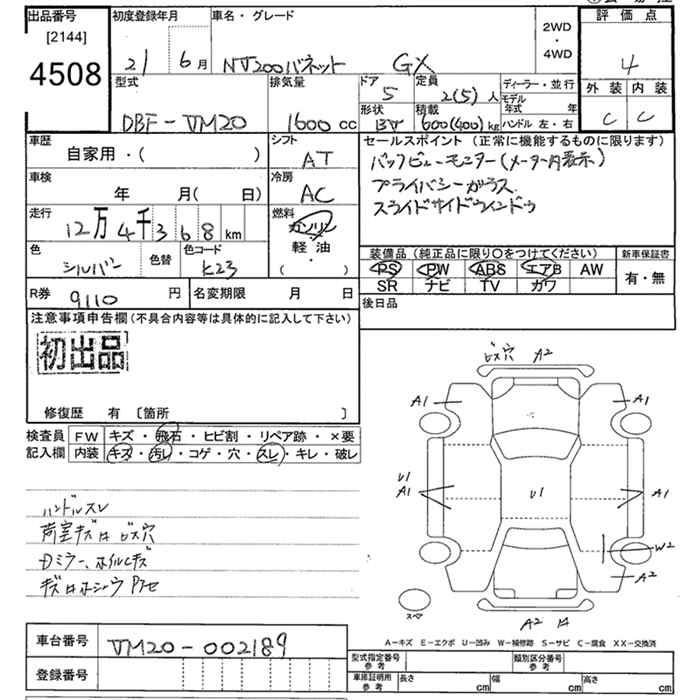 出品番号
[2144]
4508
初度登録年月
21 6月
車名・グレード
NV200バネット GX
2WD
・
4WD
評価点
4
外装 内装
C C
型式
DBF-VM20
排気量
1600cc
ドア
5
定員
2(5)人
ディーラー・並行
モデル年式 年
形状
BV
積載
600(400)kg
ハンドル 左・右
車歴
自家用・( )
シフト
AT
車検
年 月( 日)
冷房
AC
走行
12万4千368km
燃料
ガソリン
軽油
・
( )
色
シルバー
色替
色コード
K23
R券
9110円
名変期限 月 日
セールスポイント(正常に機能するものに限ります)
バックビューモニター(メーター内表示)
プライバシーガラス
スライドサイドウィンドウ
装備品(純正品に限り〇をつけてください)
新車保証書
PS PW ABS エアB AW
SR ナビ TV ガワ
有・無
後日品
注意事項申告欄(不具合内容等は具体的に記入して下さい)
初出品
修復歴 有 〔箇所 〕
検査員記入欄
FW キズ・飛石・ヒビ割・リペア跡・×要
内装 キズ・汚レ・コゲ・穴・スレ・キレ・破レ
ハンドルスレ
荷室キズ ビス穴
Dミラー、ホイルキズ
ビス穴 A2
A1 A1
U1
A1
U1
A1
W2
A2
スペア
A2
A-キズ E-エクボ U-凹み W-補修跡 S-サビ C-腐食 XX-交換済
車台番号
VM20-002189
登録番号
型式指定番号
参考
類別区分番号
参考
車庫証明用
参考
長さ cm
幅 cm
高さ cm